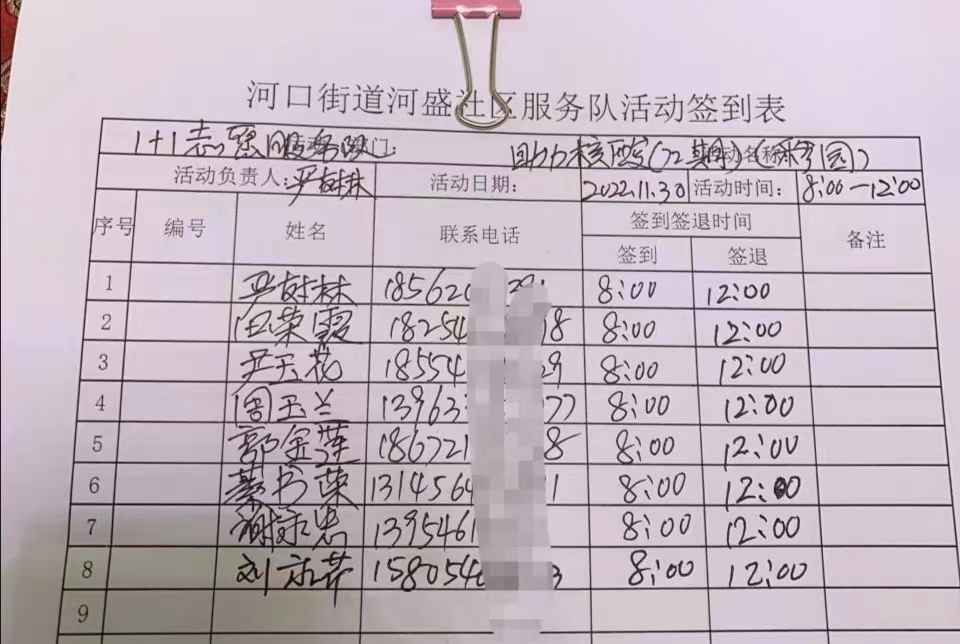 河口街道河盛社区服务队活动签到表
1+1志愿服务队 门： 助力核酸(二期) 动名称 园)
活动负责人：严树林 活动日期： 2022.11.30 活动时间： 8:00—12:00
序号 编号 姓名 联系电话 签到签退时间 备注
签到 签退
1 严树林 18562 8:00 12:00
2 田荣霞 18254 18 8:00 12:00
3 尹玉花 18554 29 8:00 12:00
4 周玉兰 13963 77 8:00 12:00
5 郭金莲 186721 8 8:00 12:00
6 綦书荣 1314564 1 8:00 12:00
7 谢永忠 1395461 8:00 12:00
8 刘 158054 3 8:00 12:00
9